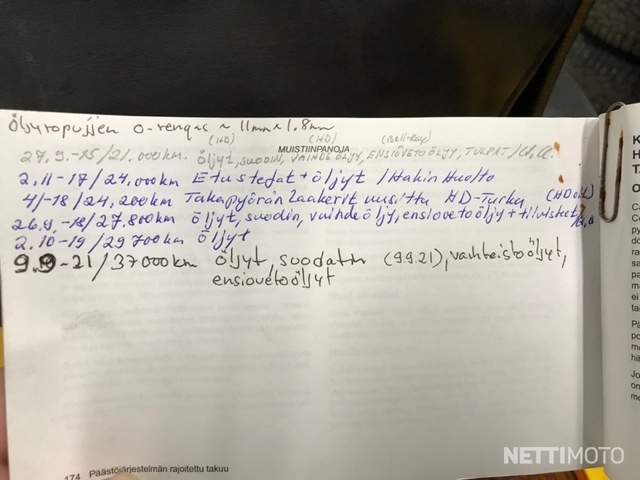 Öljyropujjen o-rengas ≈ 11mm × 1.8mm
(HD) (HD) (Bell-Ray)
MUISTIINPANOJA
27.9.-15/21.000km. ÖLJYT, SUODIN, VAIHDEÖLJY, ENSIÖVETOÖLJY, TULPAT/
2.11-17/24.000km Etustefat + öljyt / Hakin Huolto
4/-18/24,200km Takapyörän laakerit uusittu HD-Turku (HD oil)
26.9.-18/27.800km öljyt, suodin, vaihdeöljy, ensiovetoöljy + tiivisteet/
2.10-19/29700km öljyt
9.9-21/37000km öljyt, suodatin (9.9.21), vaihteistoöljyt,
ensiovetoöljyt
174 Päästöjärjestelmän rajoitettu takuu
NETTIMOTO